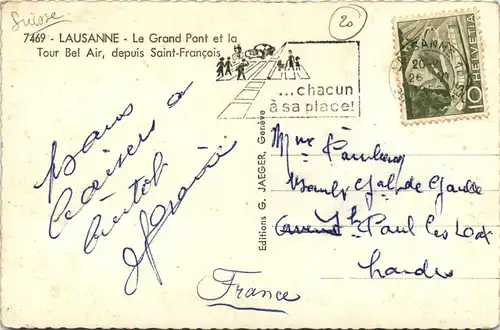 Suisse
20
7469 - LAUSANNE - Le Grand Pont et la
Tour Bel Air, depuis Saint-François
...chacun
à sa place!
LAUSANNE
20-
26.
HELVETIA
10
Bons
baisers à
bientôt
Editions G. JAEGER, Genève
Mme
Gal de Gaulle
St Paul les Dax
Landes
France